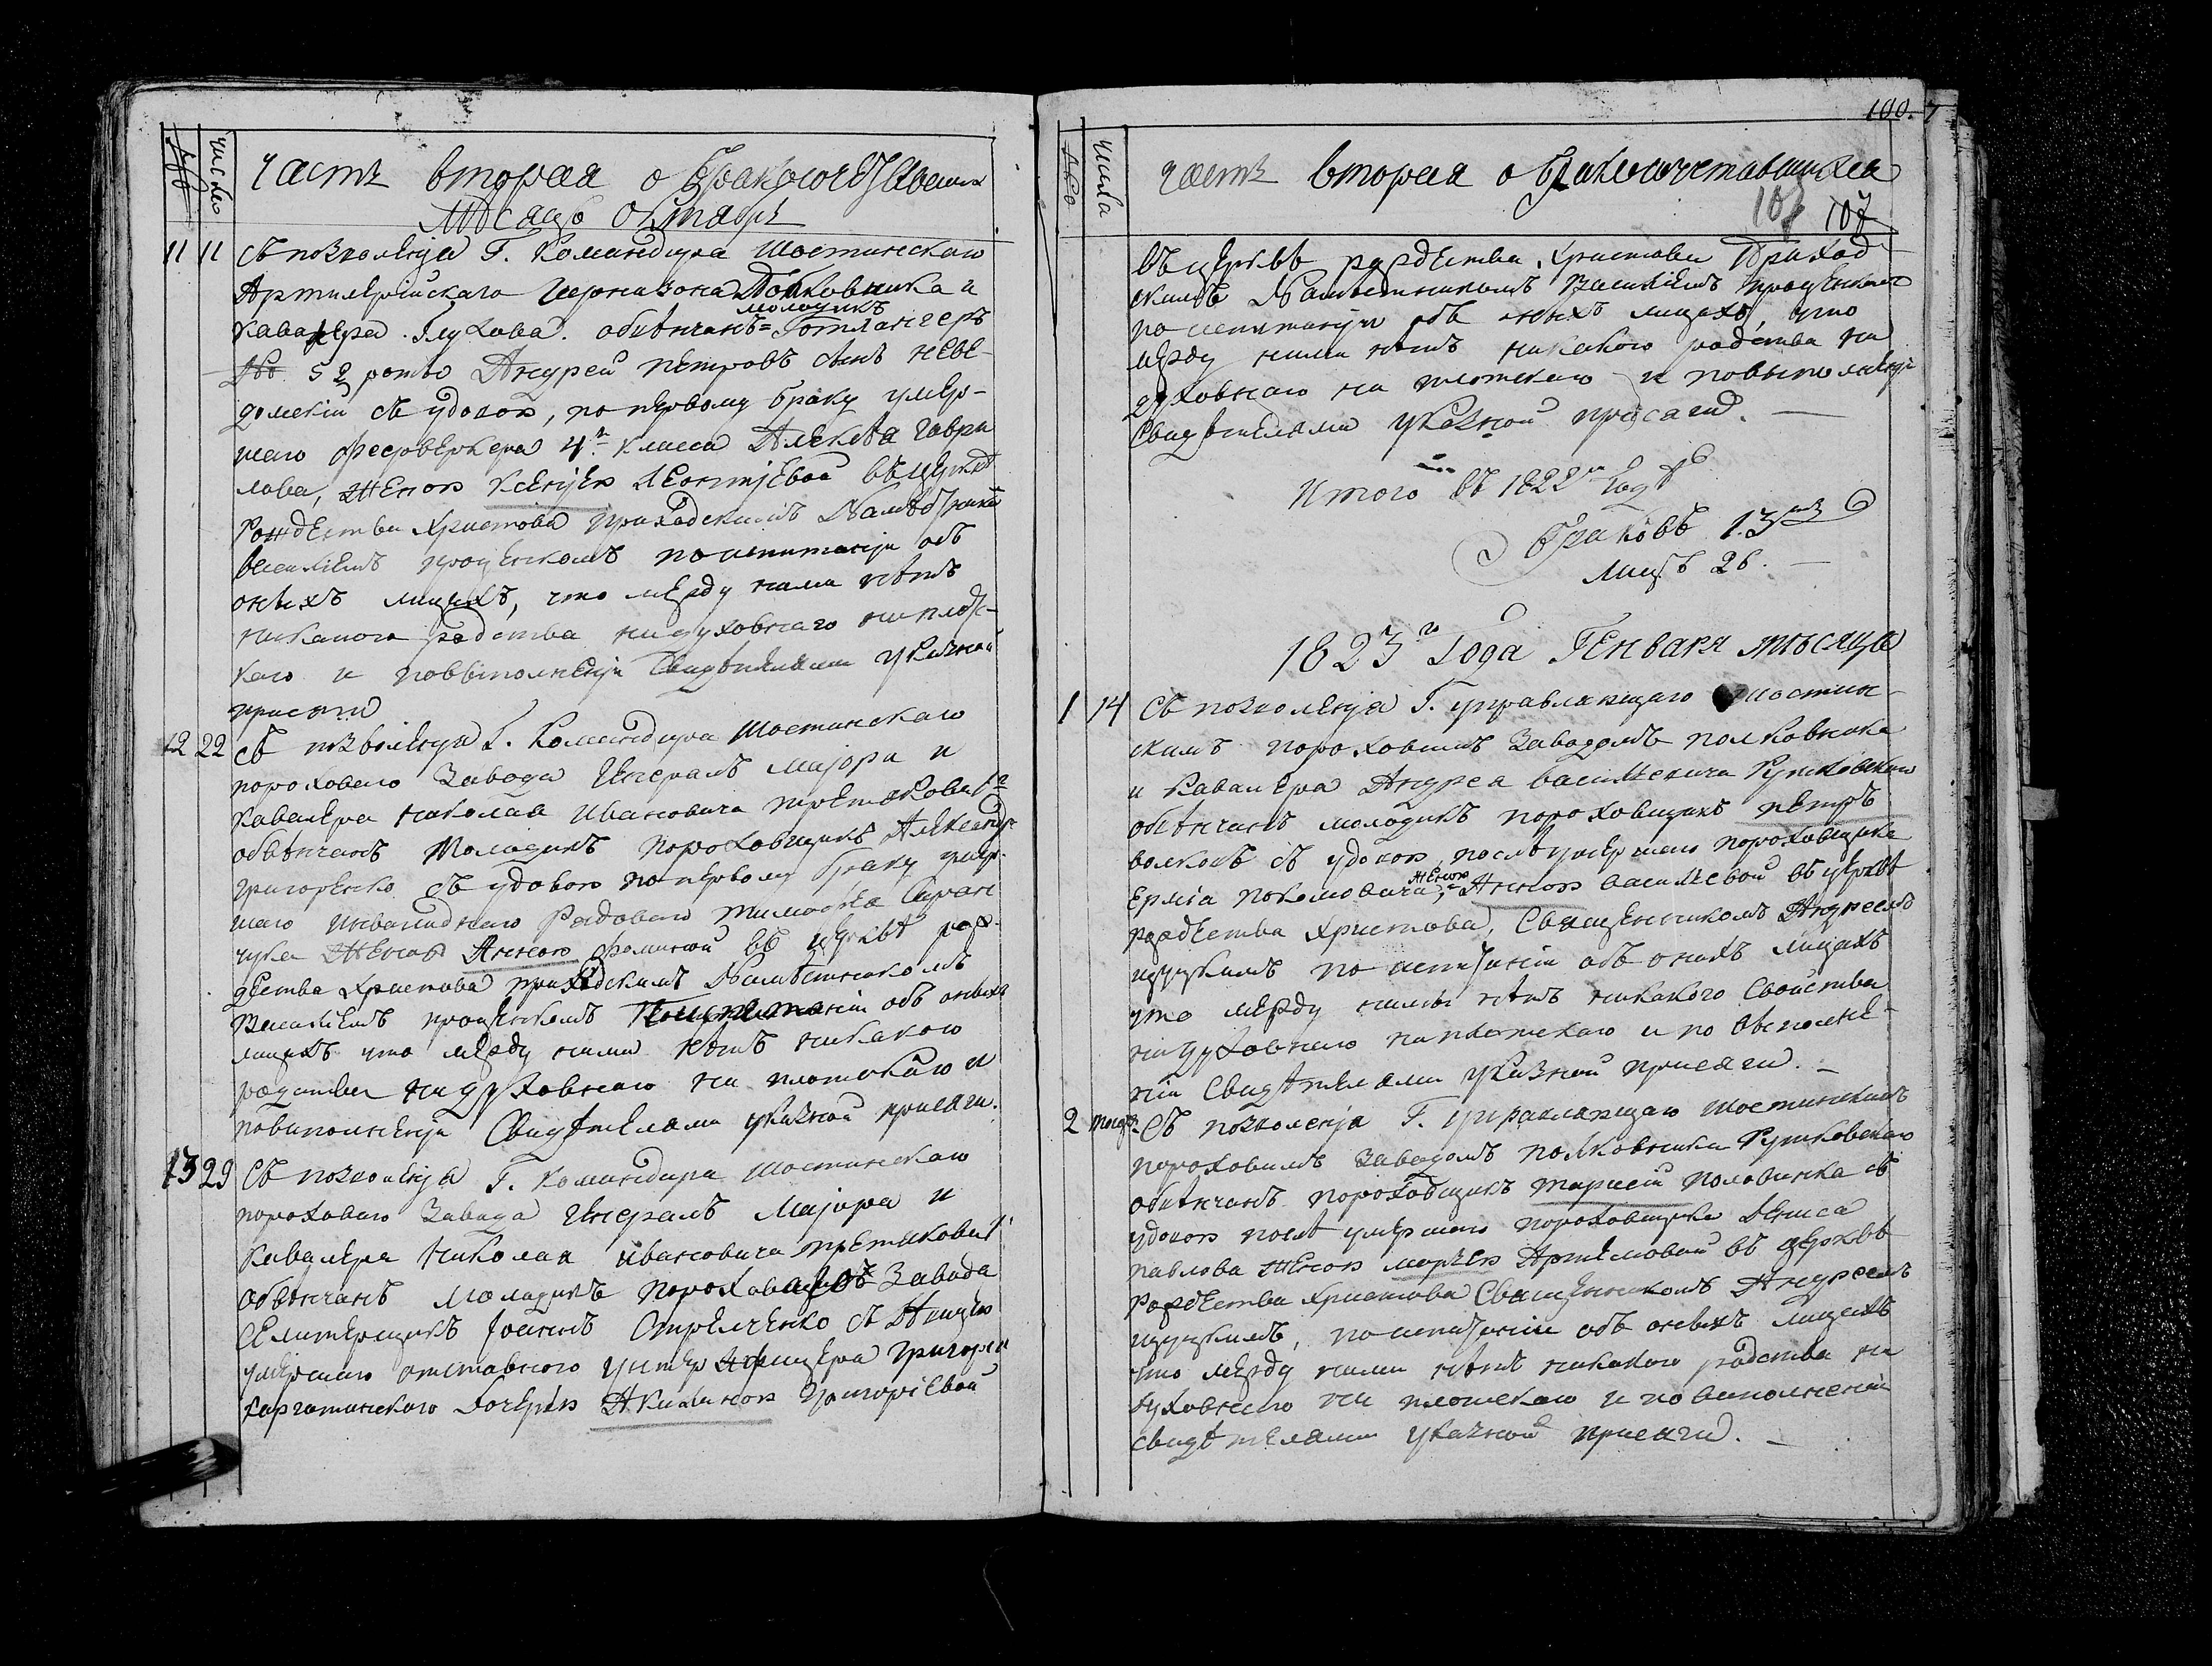 Число
часть вторая о бракосочетавшихся
Месяцъ Октябрь
11 11 Съ позволенія Г. Командира Шостинскаго
Артилерійскаго Гарнизона Полковника и
молодикъ
кавалера Глухова. обвенчанъ=Готлангеръ
№ 52 роты Андрей Петровъ сынъ
съ удовою, по первому браку умер-
шаго феерверкера 4го класса Алексея Гаври
лова, женою Ксеніею Леонтіевой въ церкве
Рождества Христова приходскимъ Наместником
Василіемъ Проценкомъ по испитаніи объ
оныхъ лицахъ, что между нами нѣтъ
никакого родства ни духовнаго ни плотс-
каго и повыполненіи свидетелями указной
присяги
12 22 Съ позволенія Г. Командира Шостинскаго
пороховаго Завода Генералъ Маіора и
Кавалера Николая Ивановича Третякова 1го
обвѣнчанъ молодикъ пороховщикъ Александр
Григоренко съ удовою по первому браку умер-
шаго инвалиднаго Рядоваго Тимофея
чука женою Анною Фоминой въ церквѣ рож-
дества Христова приходскимъ Наместникомъ
Василіемъ Проценкомъ по испитаніи объ оныхъ
лицахъ что между нами нѣтъ никакого
родства ни духовнаго ни плотскаго и
повиполненіи Свидѣтелями указной присяги.
13 29 Съ позволенія Г. Командира Шостинскаго
пороховаго Завода Генералъ Маіора и
Кавалера Николая Ивановича Третякова 1
обвѣнчанъ молодикъ пороховаго Завода
Селитерщикъ Іоаннъ Стрельченко съ дѣвицею
умершаго отставного унтер офицера Григорія
дочерью Акилиною Григоріевой
100. 7
Числа
часть вторая о бракосочетавшихся
107 107
въ церквѣ рождества Христова Приход-
скимъ Намѣстникомъ Василіемъ Проценкомъ
по испитаніи объ оныхъ лицахъ, что
между ними нѣтъ никакого родства ни
духовнаго ни плотскаго и повыполненіи
Свидѣтелями указной присяги.
Итого въ 1822м Годѣ
Браковъ 13ть
Лицъ 26.
1823го Года Генваря мѣсяца
1 14 Съ позволенія Г. управляющаго Шостин-
скимъ пороховымъ Заводомъ полковника
и Кавалера Андрея Васильевича Рутковскаго
обвѣнчанъ молодикъ пороховщикъ Петръ
Волковъ съ удовою послѣ умершаго пороховщика
женою
Ермія Покомовича, Анною Василевой въ церквѣ
рождества Христова, Священникомъ Андреемъ
по испитаніи объ оныхъ лицахъ
что между ними нѣтъ никакого Свойства
ни духовнаго ни плотскаго и по выполне-
ніи Свидѣтелями указной присяги.
2 Съ позволенія Г. Управляющаго Шостинскимъ
пороховимъ Заводомъ Полковника Рутковскаго
обвѣнчанъ пороховщикъ Тарасій Половинка съ
удовою послѣ умершаго пороховщика Дениса
Павлова женою Марѳею Артемовой въ церквѣ
Рождества Христова Священникомъ Андреемъ
, по испитаніи объ оныхъ лицахъ
что между ними нѣтъ никакого родства ни
духовнаго ни плотскаго и по виполненіи
свидѣтелями указной присяги.